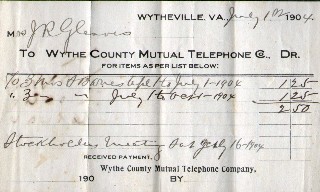 WYTHEVILLE, VA. July 1st 1904
Mrs J. R. Gleaves
TO WYTHE COUNTY MUTUAL TELEPHONE Co., DR.
FOR ITEMS AS PER LIST BELOW:
To 3 July 1-1904 1 25
" 3 " July 1 to Oct 1-1904 1 25
2 50
Stockholders Meeting July 16-1904
RECEIVED PAYMENT,
Wythe County Mutual Telephone Company.
190 BY